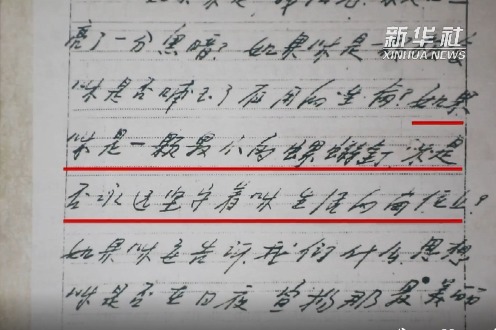 新华社
XINHUA NEWS
亮了一分黑暗？如果你是一
你是否哺育了有用的生命？如果
你是一颗最小的螺丝钉 你是
否永远坚守着你生活的岗位上？
如果你要告诉我们什么思想
你是否在日夜宣扬那最美丽